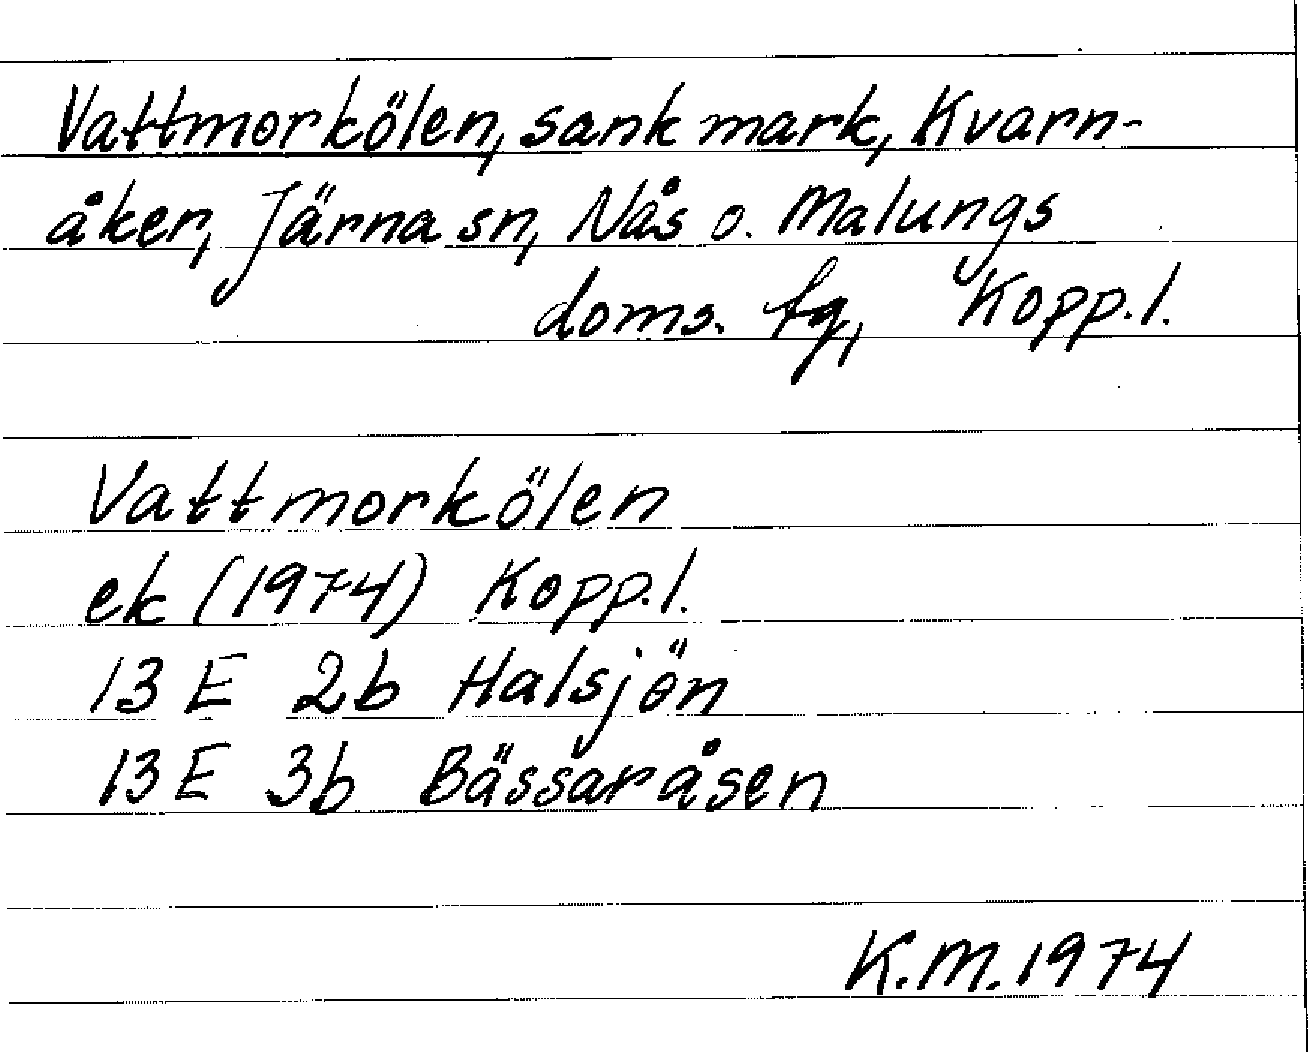 Vattmorkölen, sank mark, Kvarn-
åker, Järna sn, Nås o. Malungs
doms. fg, Kopp.l.
Vattmorkölen
ek (1974) Kopp.l.
13 E 2b Halsjön
13 E 3b Bässaråsen
K.M. 1974